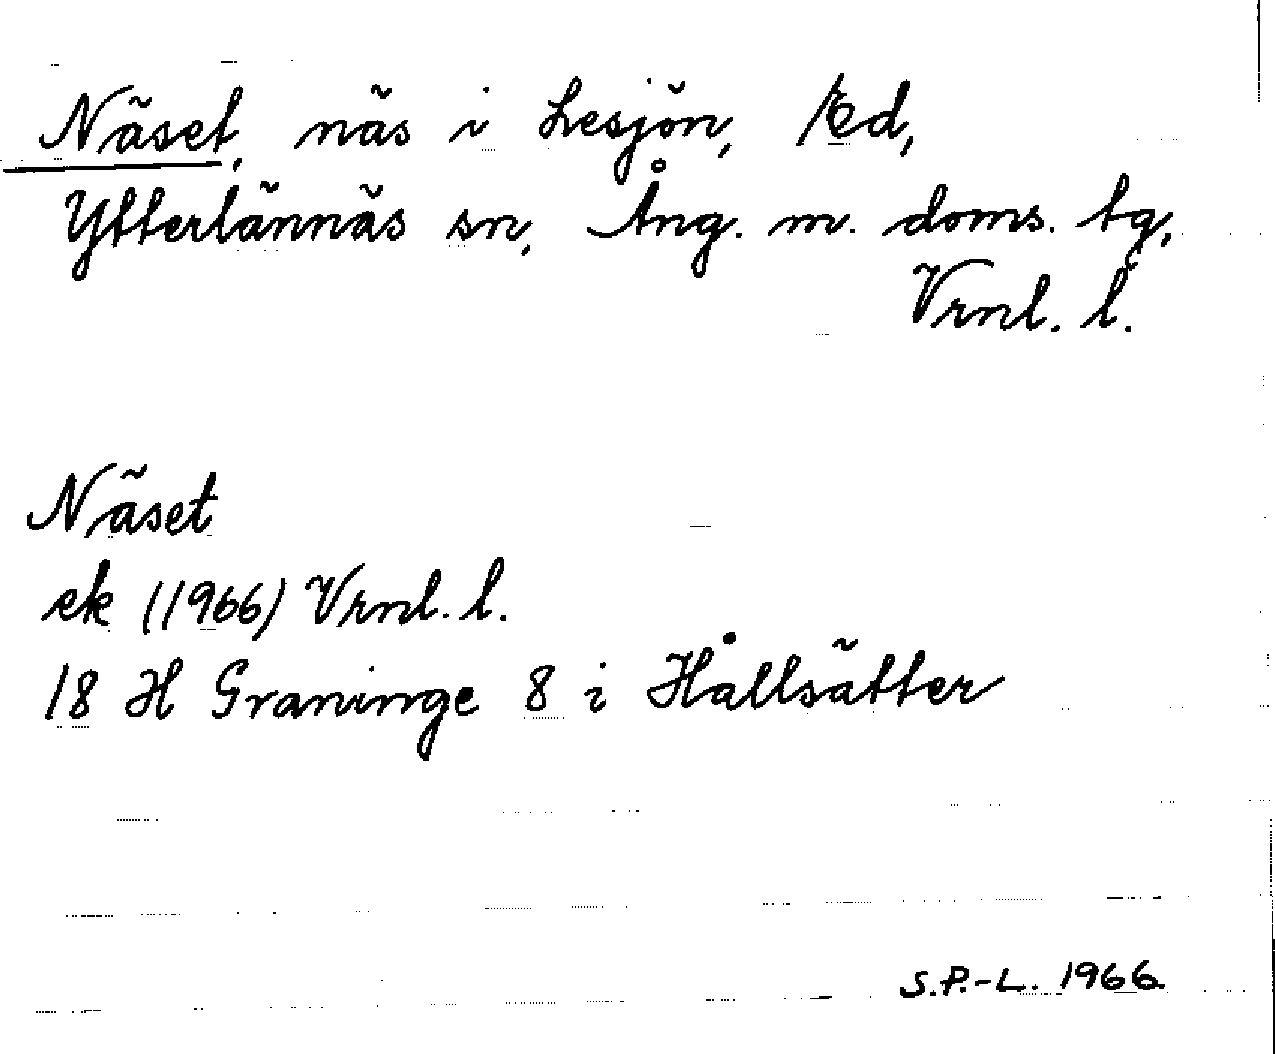 Näset, näs i Lesjön, /Ed,
Ytterlännäs sn, Ång. m. doms. tg,
Vrnl. l.
Näset
ek (1966) Vrnl. l.
18 H Graninge 8 i Hållsätter
S.P.-L. 1966.